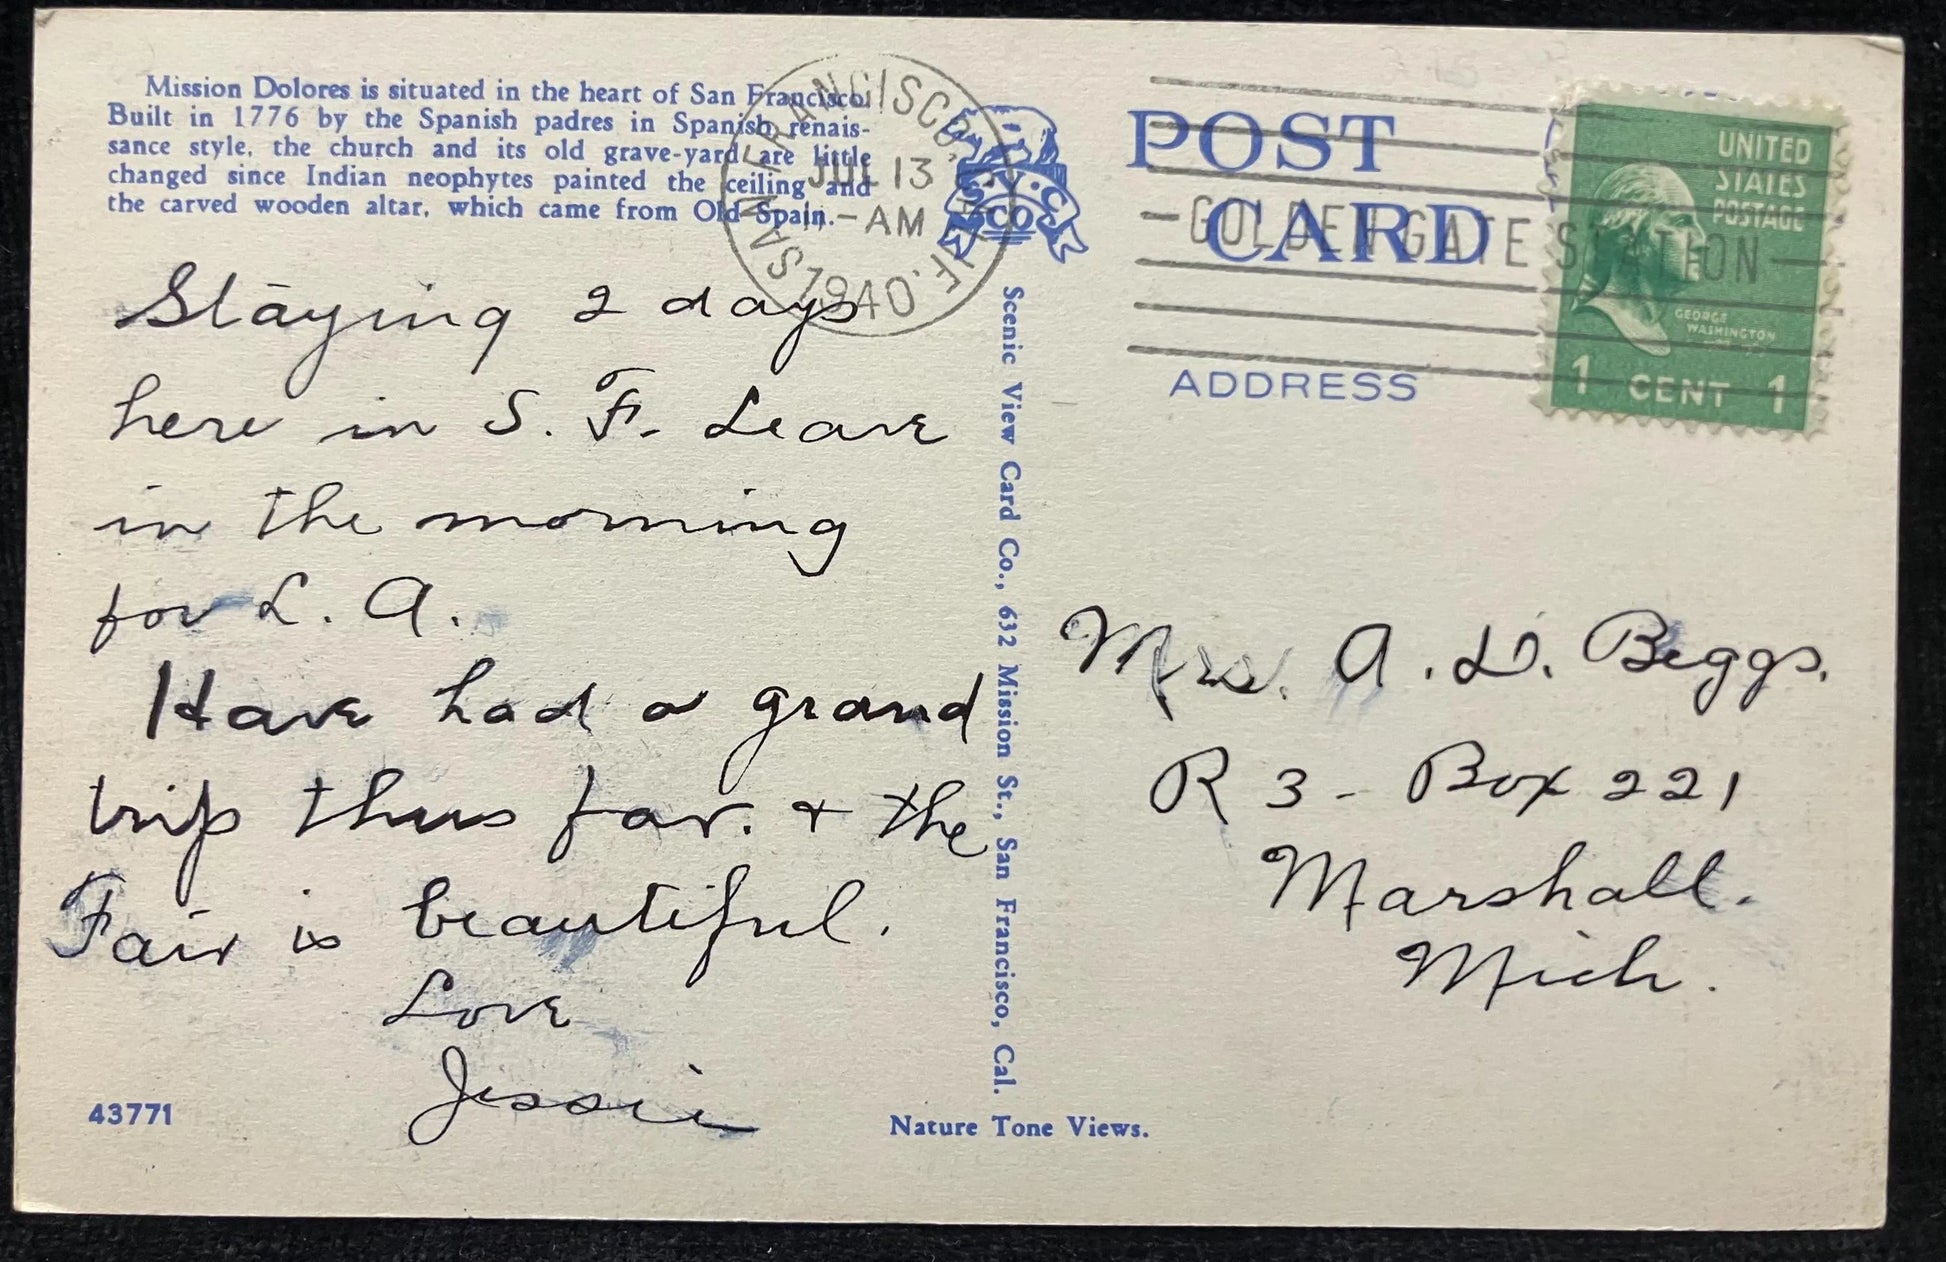 Mission Dolores is situated in the heart of San Francisco.
Built in 1776 by the Spanish padres in Spanish renais-
sance style, the church and its old grave-yard are little
changed since Indian neophytes painted the ceiling and
the carved wooden altar, which came from Old Spain.
SAN FRANCISCO, CALIF.
JUL 13
11 - AM
1940
S.V.C.
CO
POST
CARD
ADDRESS
- GOLDEN GATE STATION -
UNITED
STATES
POSTAGE
GEORGE
WASHINGTON
1 CENT 1
Staying 2 days
here in S. F. Leave
in the morning
for L. A.
Have had a grand
trip thus far. + the
Fair is beautiful.
Love
Jessie
Scenic View Card Co., 632 Mission St., San Francisco, Cal.
Mrs. A. D. Beggs.
R 3 - Box 221
Marshall.
Mich.
43771
Nature Tone Views.